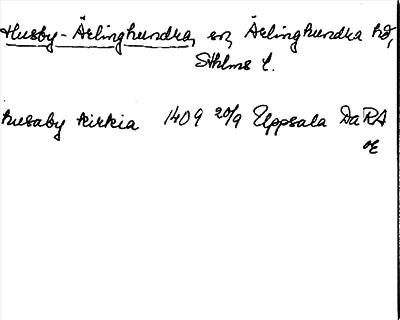 Husby-Ärlinghundra, sn, Ärlinghundra hd,
Sthlms l.
husaby kirkia 1409 20/9 Uppsala DaRA
or